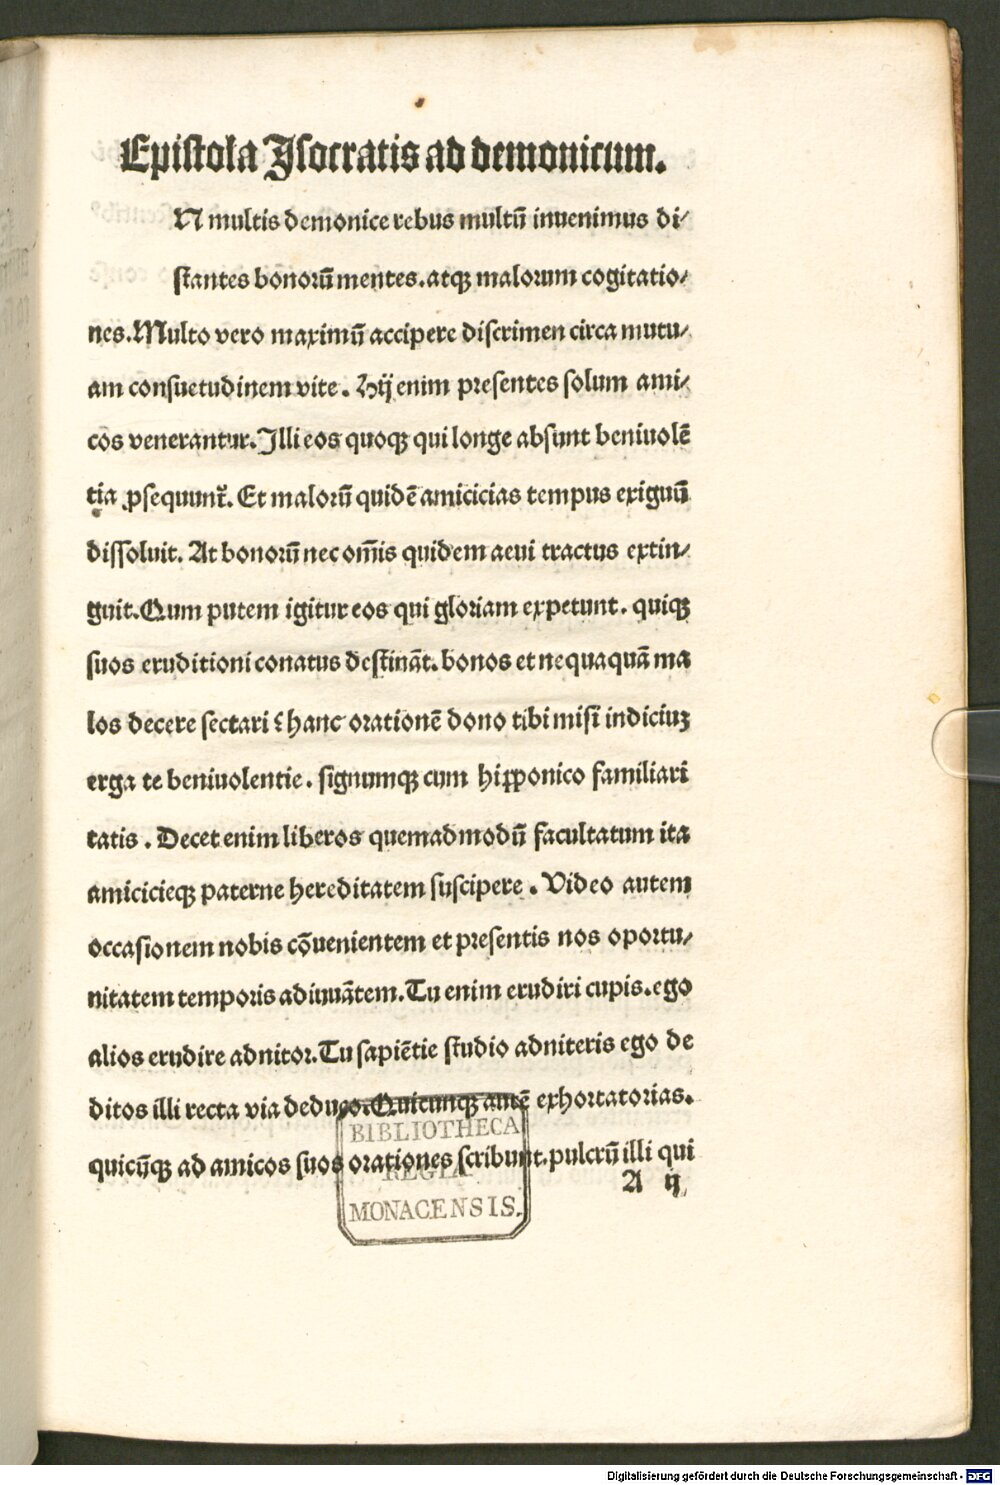 Epistola Isocratis ad demonicum.
N multis demonice rebus multū inuenimus di⸗
stantes bonorū mentes. atqꝫ malorum cogitatio⸗
nes. Multo vero maximū accipere discrimen circa mutu⸗
am consuetudinem vite. Hij enim presentes solum ami⸗
cos venerantur. Illi eos quoqꝫ qui longe absunt beniuolē
tia ꝓsequunt᷑. Et malorū quidē amicicias tempus exiguū
dissoluit. At bonorū nec om̄is quidem aeui tractus extin⸗
guit. Qum putem igitur eos qui gloriam expetunt. quiqꝫ
suos eruditioni conatus destināt. bonos et nequaquā ma
los decere sectari: hanc orationē dono tibi misi indiciuꝫ
erga te beniuolentie. signumqꝫ cum hipponico familiari
tatis. Decet enim liberos quemadmodū facultatum ita
amicicieqꝫ paterne hereditatem suscipere. Video autem
occasionem nobis cōuenientem et presentis nos oportu⸗
nitatem temporis adiuuātem. Tu enim erudiri cupis. ego
alios erudire adnitor. Tu sapiētie studio adniteris ego de
ditos illi recta via deduco. Quicunqꝫ autē exhortatorias.
quicūqꝫ ad amicos suos orationes scribunt. pulcrū illi qui
A ij
BIBLIOTHECA
REGIA
MONACENSIS.
Digitalisierung gefördert durch die Deutsche Forschungsgemeinschaft - DFG